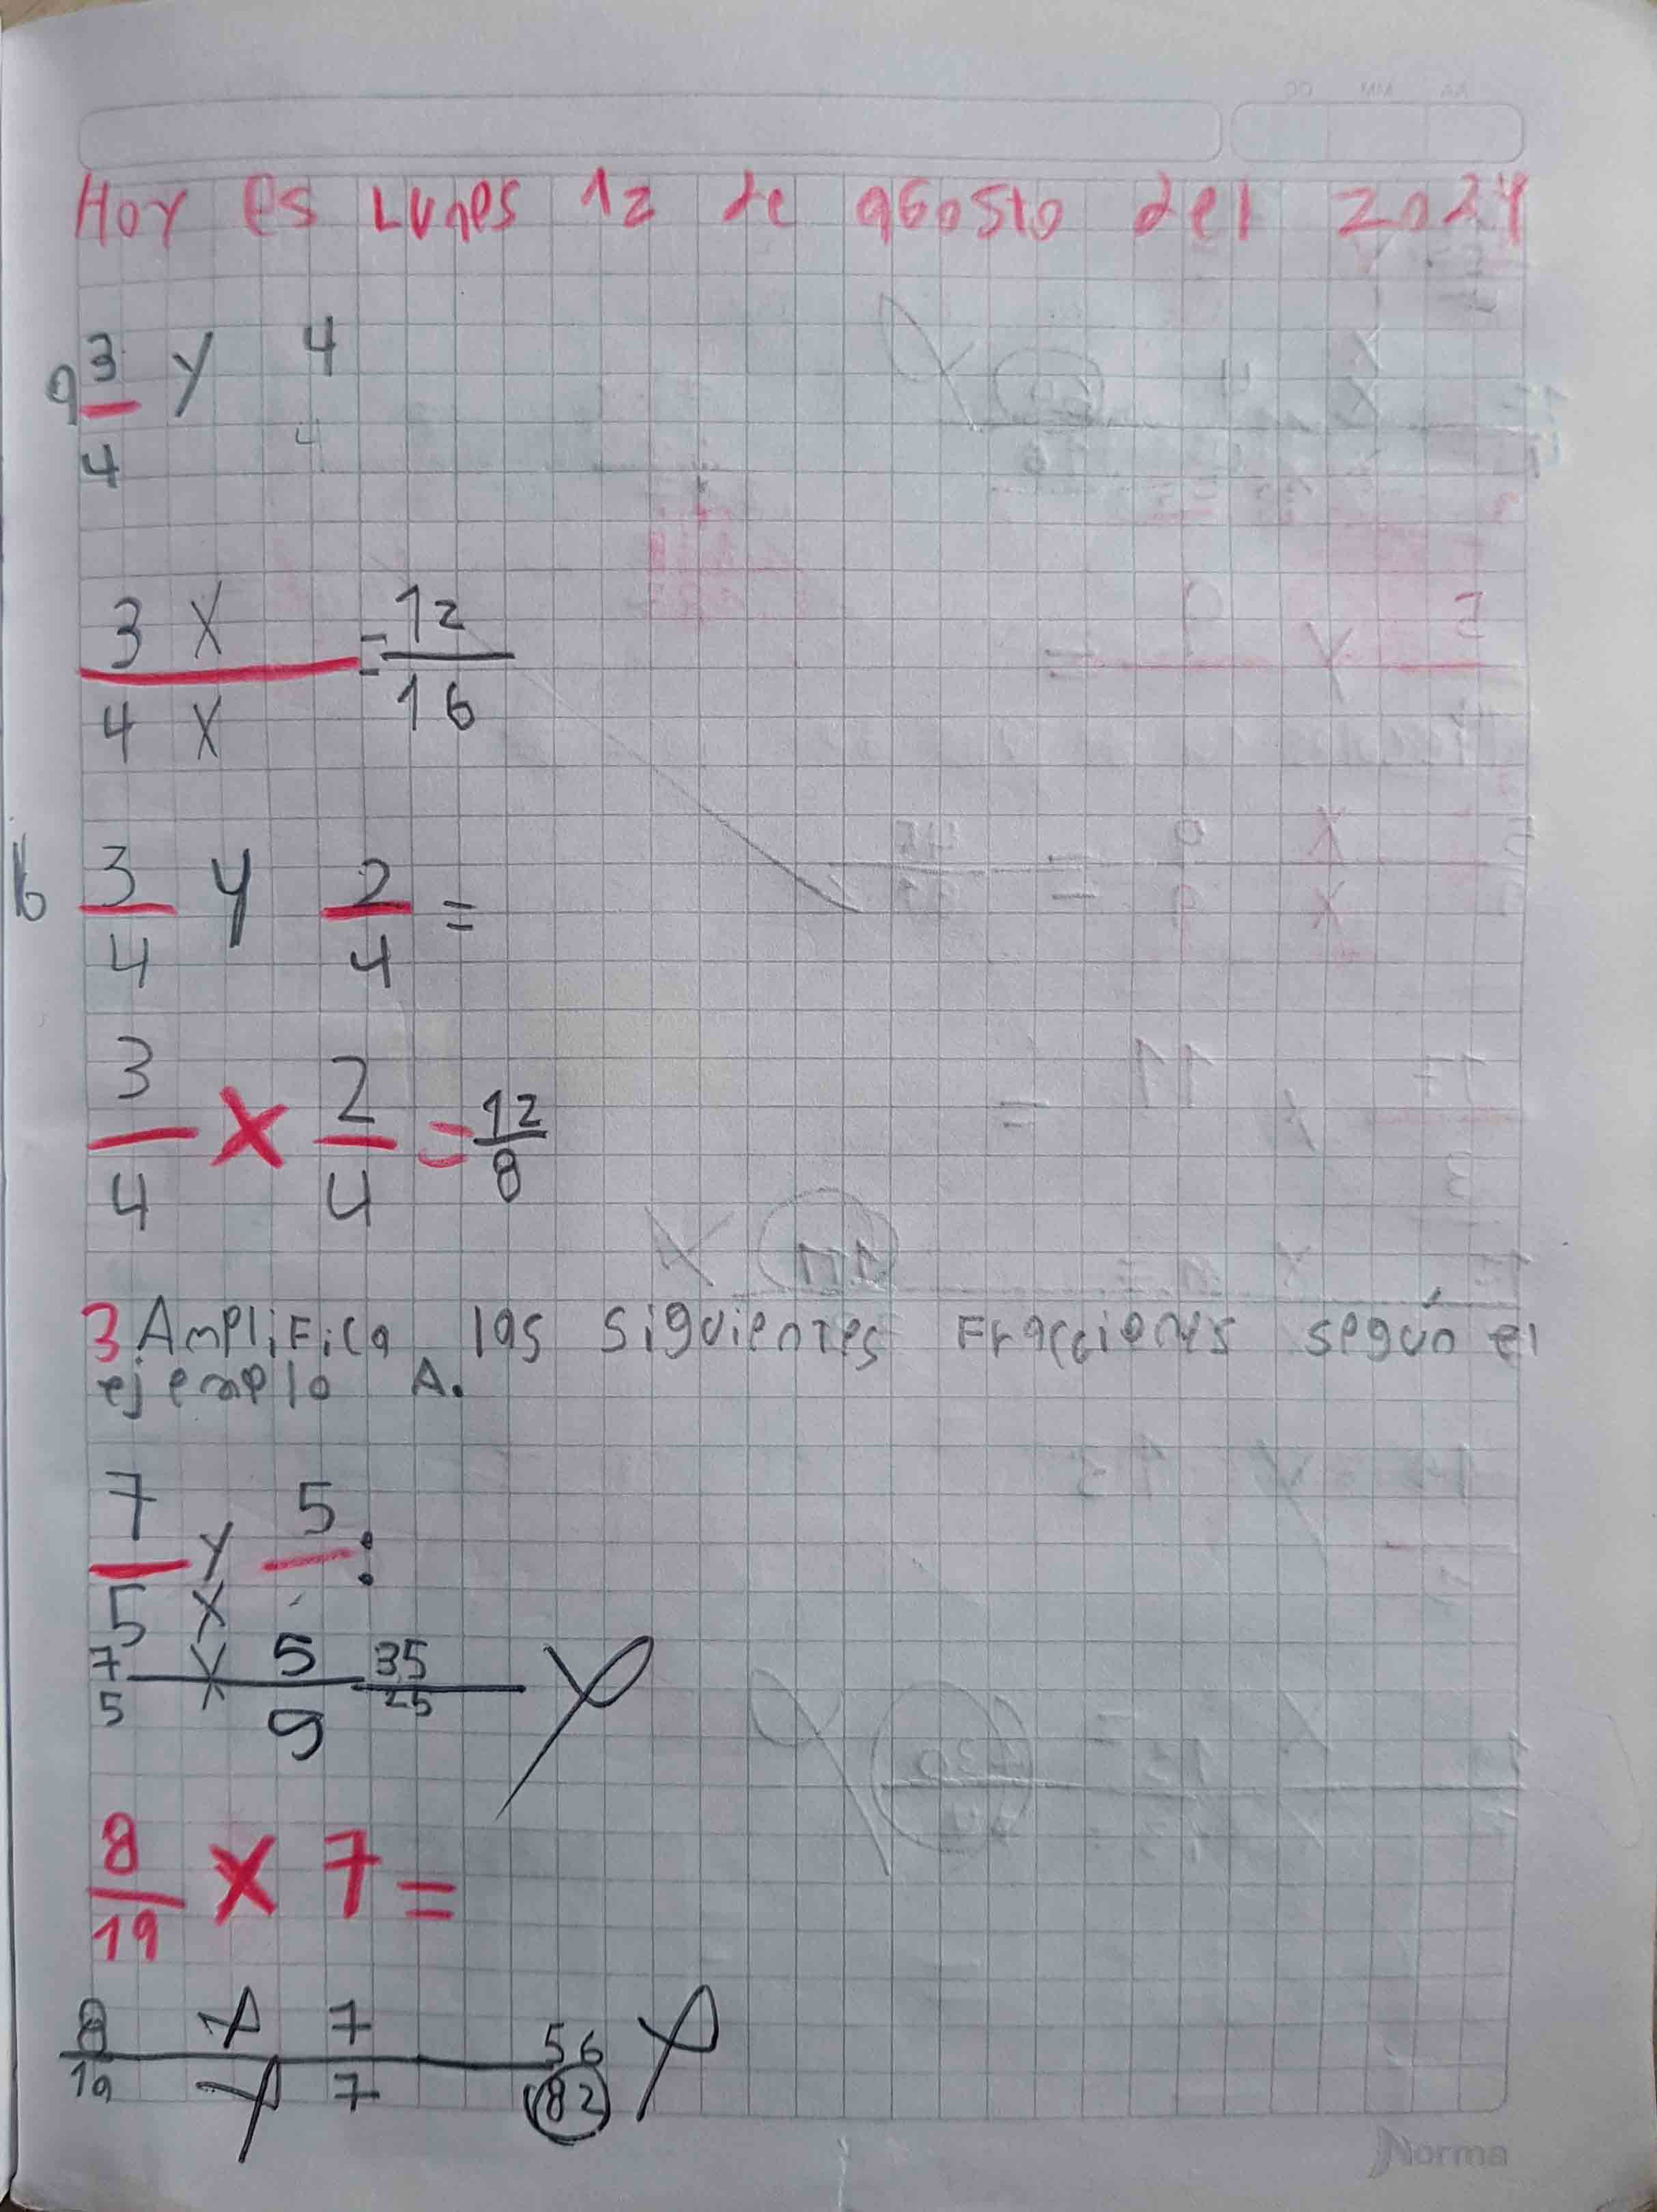 Hoy es Lunes 12 de agosto del 2024
a 3/4 y 4
4
3 X / 4 X = 12/16
b 3/4 y 2/4 =
3/4 X 2/4 = 12/8
3 Amplifica las siguientes Fracciones según el
ejemplo A.
7/5 y 5 :
X
7/5 X 5/9 35/25
8/19 X 7 =
8/19 X 7/7 56/82
Norma